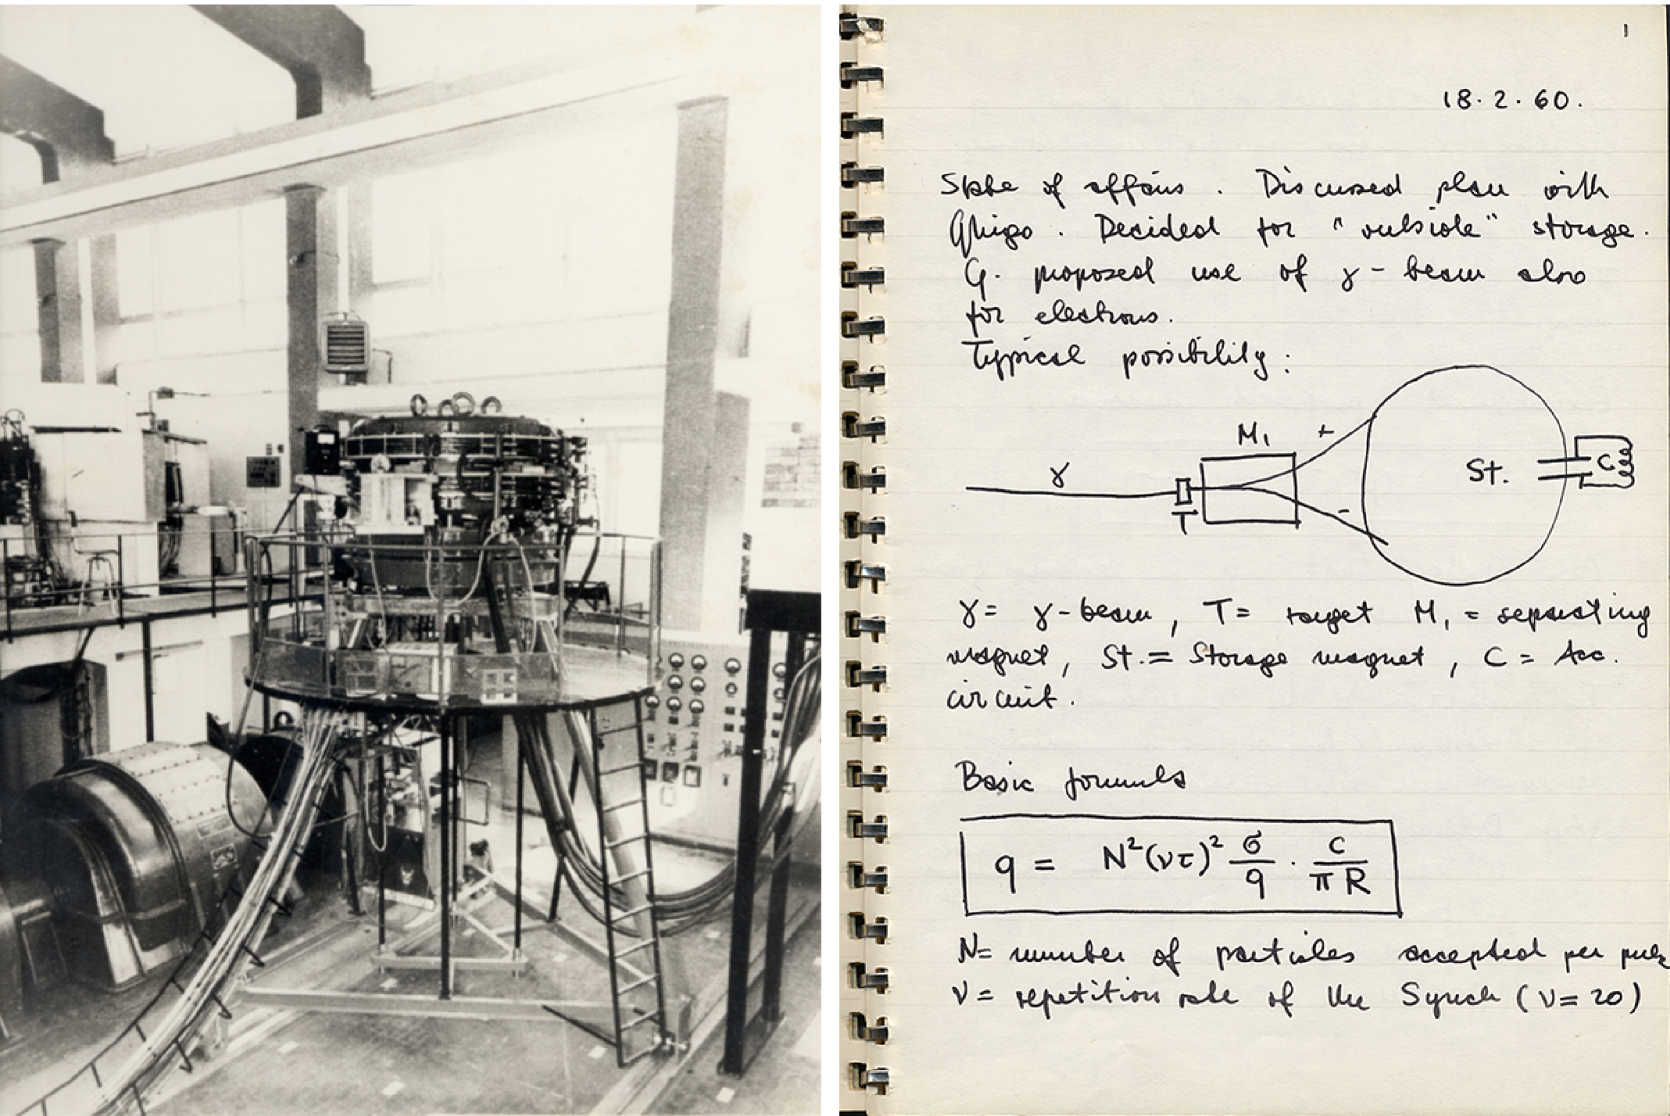 1
18.2.60.
State of affairs. Discussed plan with
Ghigo. Decided for "outside" storage.
G. proposed use of γ-beam also
for electrons.
Typical possibility:
M₁
+
γ
St.
C
-
T
γ = γ-beam, T = target M₁ = separating
magnet, St. = Storage magnet, C = Acc.
circuit.
Basic formula
q = N²(ντ)² σ/q · c/πR
N = number of particles accepted per pulse
ν = repetition rate of the Synch (ν = 20)